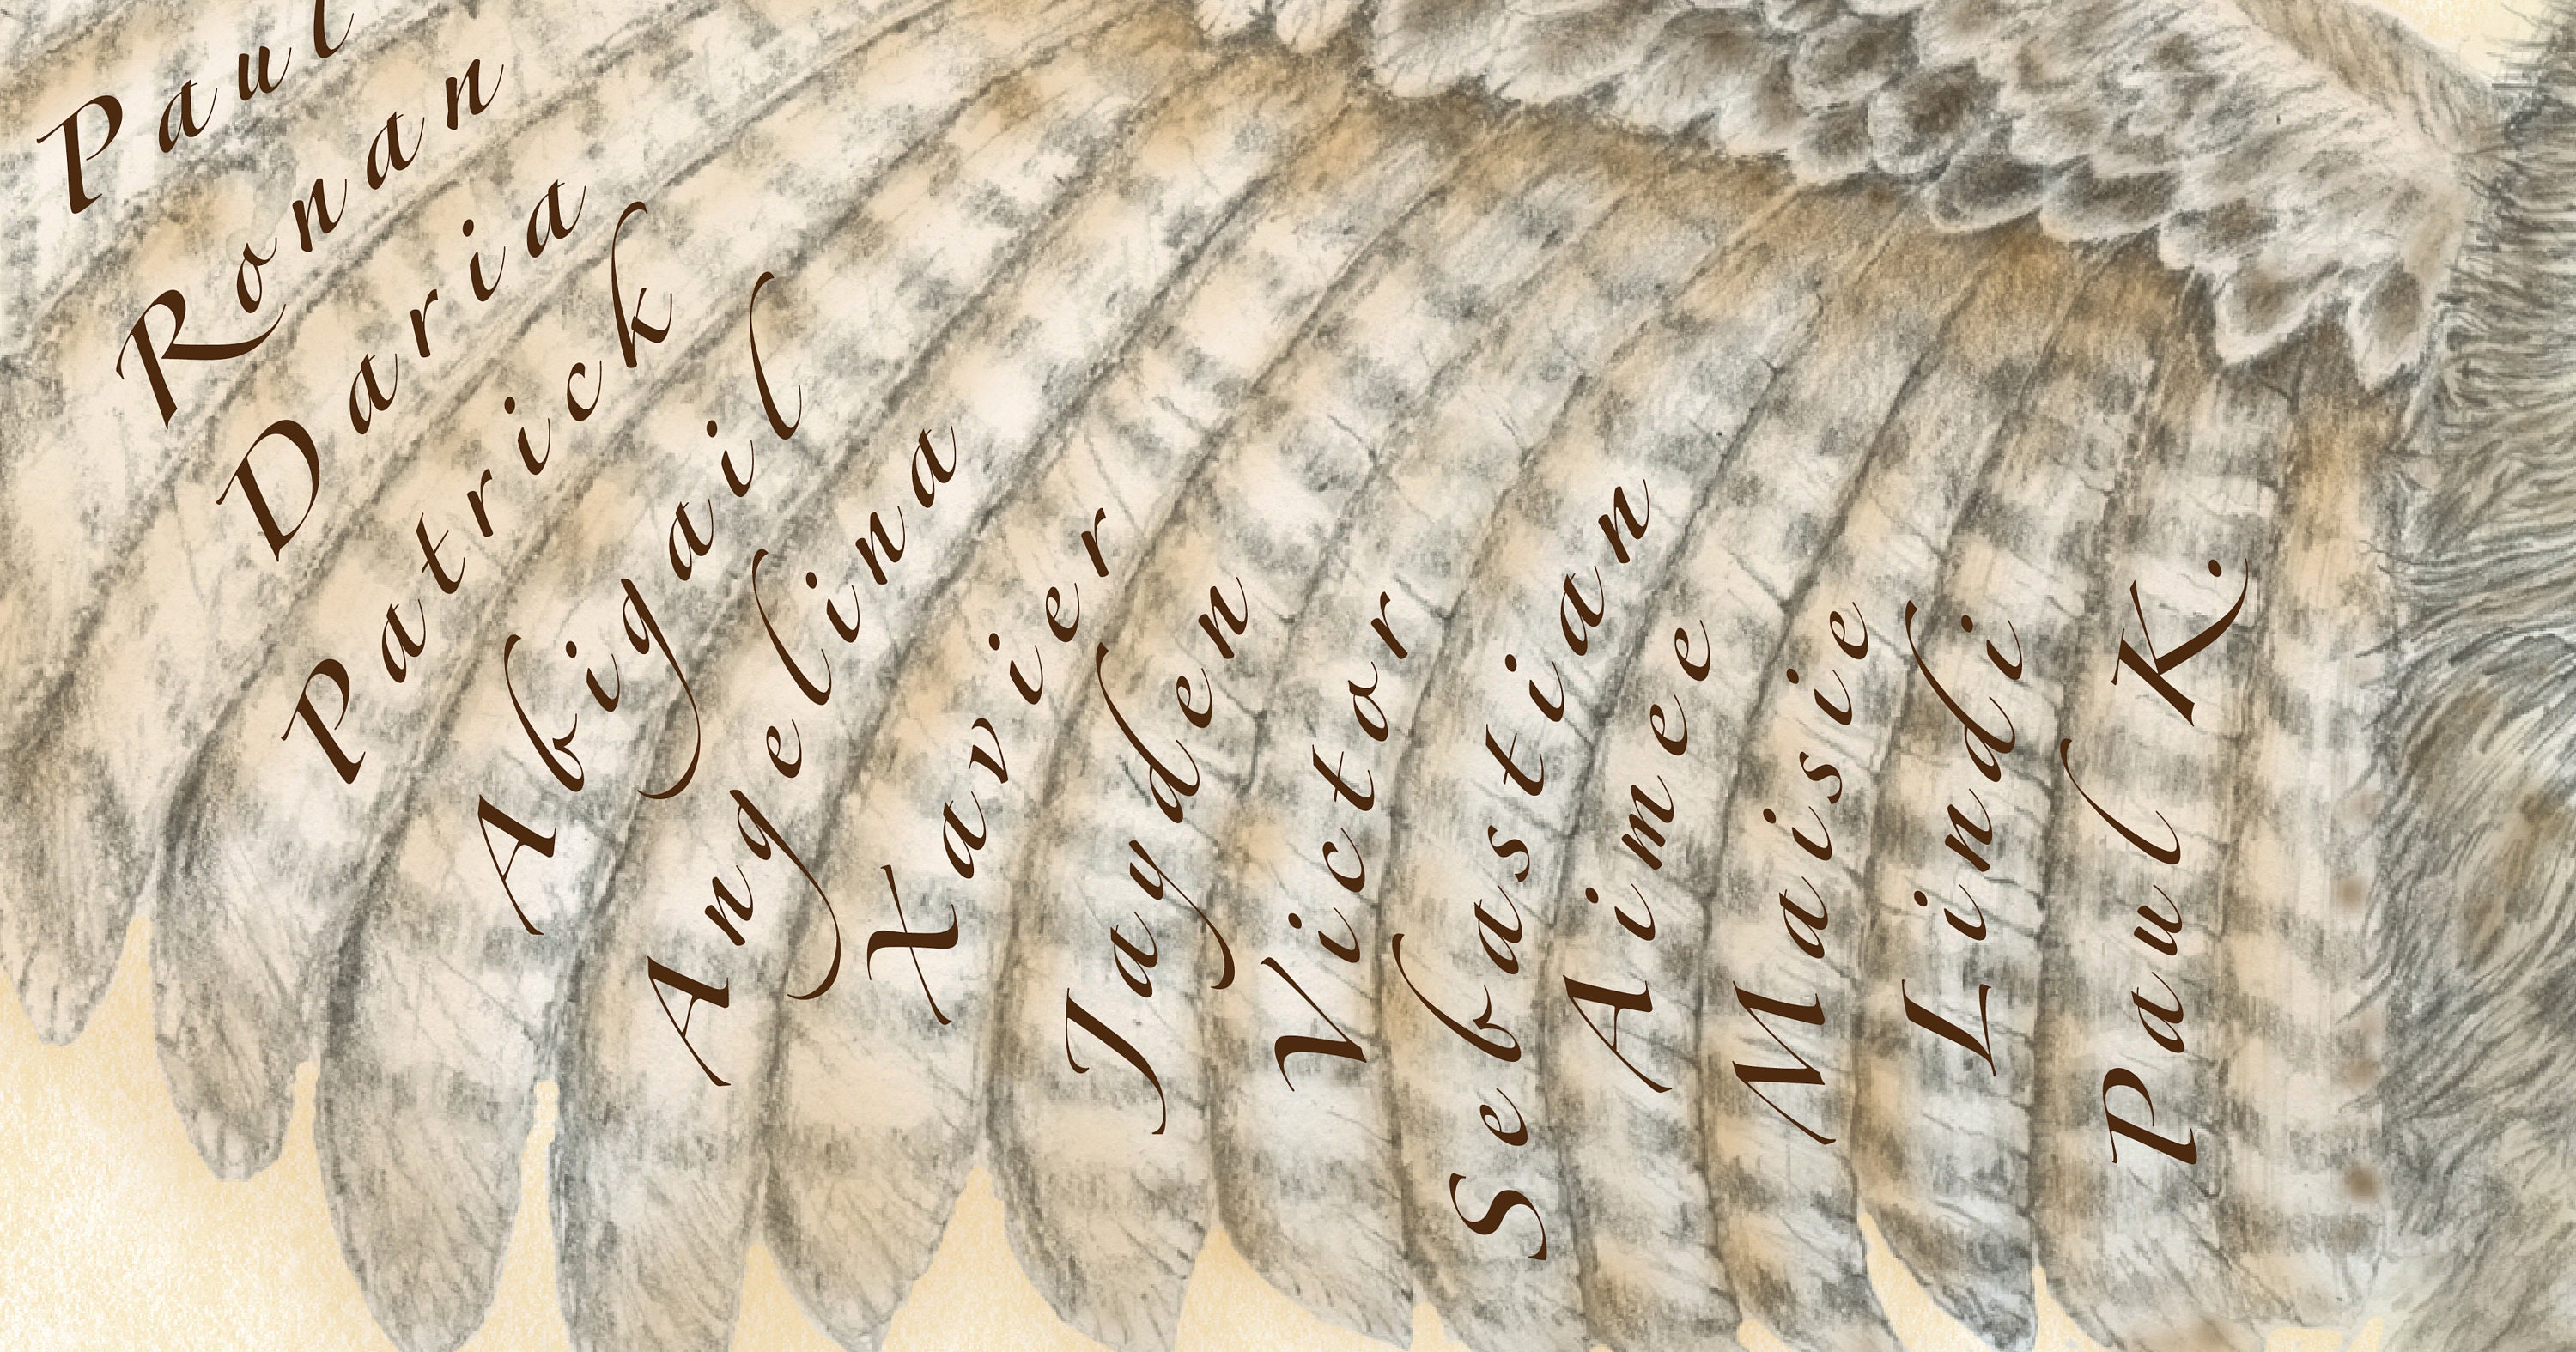 Paul
Ronan
Daria
Patrick
Abigail
Angelina
Xavier
Jayden
Victor
Sebastian
Aimee
Maisie
Lindi
Paul K.